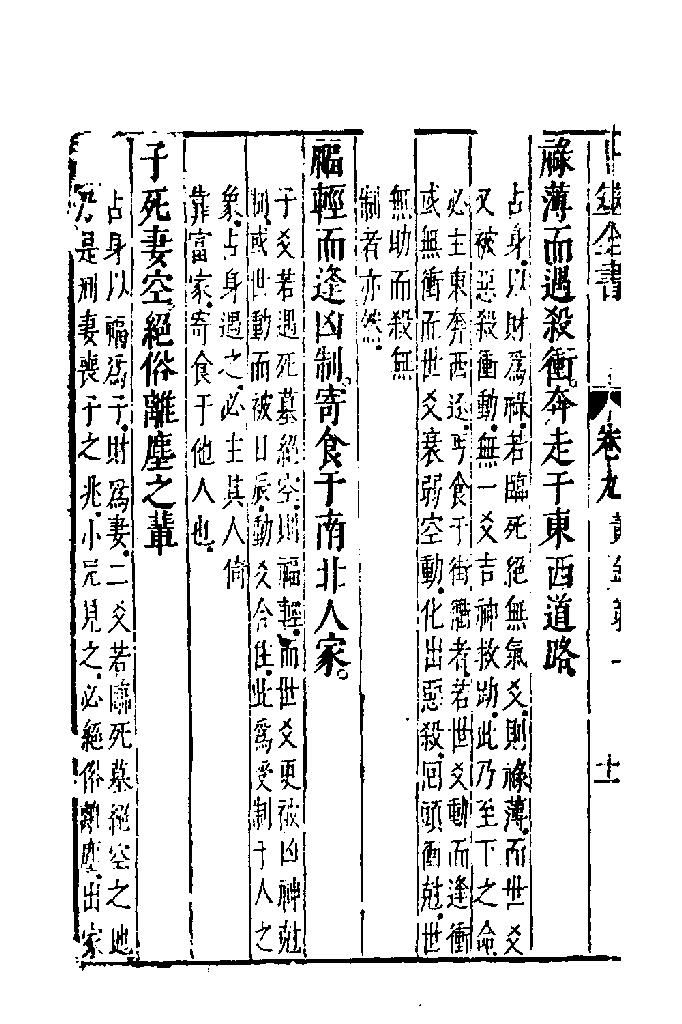 卜筮全書　卷九　黃金策一　十一
祿薄而遇殺衝。奔走于東西道路。
占身以財爲祿.若臨死絕無氣爻.則祿薄.而世爻
又被惡殺衝動.無一爻吉神救助.此乃至下之命.
必主東奔西逐.丐食于街衢者.若世爻動而逢衝
或無衝而世爻衰弱空動.化出惡殺.回頭衝尅.世
無助而殺無
制者亦然.
福輕而逢凶制。寄食于南北人家。
子爻若遇死墓絕空.則福輕.而世爻更被凶神尅
制.或世動而被日辰.動爻合住.此爲受制于人之
象.占身遇之.必主其人倚
靠富家.寄食于他人也.
子死妻空.絕俗離塵之輩
占身以福爲子.財爲妻.二爻若臨死墓絕空之地
乃是刑妻喪子之兆.小兒見之.必絕俗離塵.出家